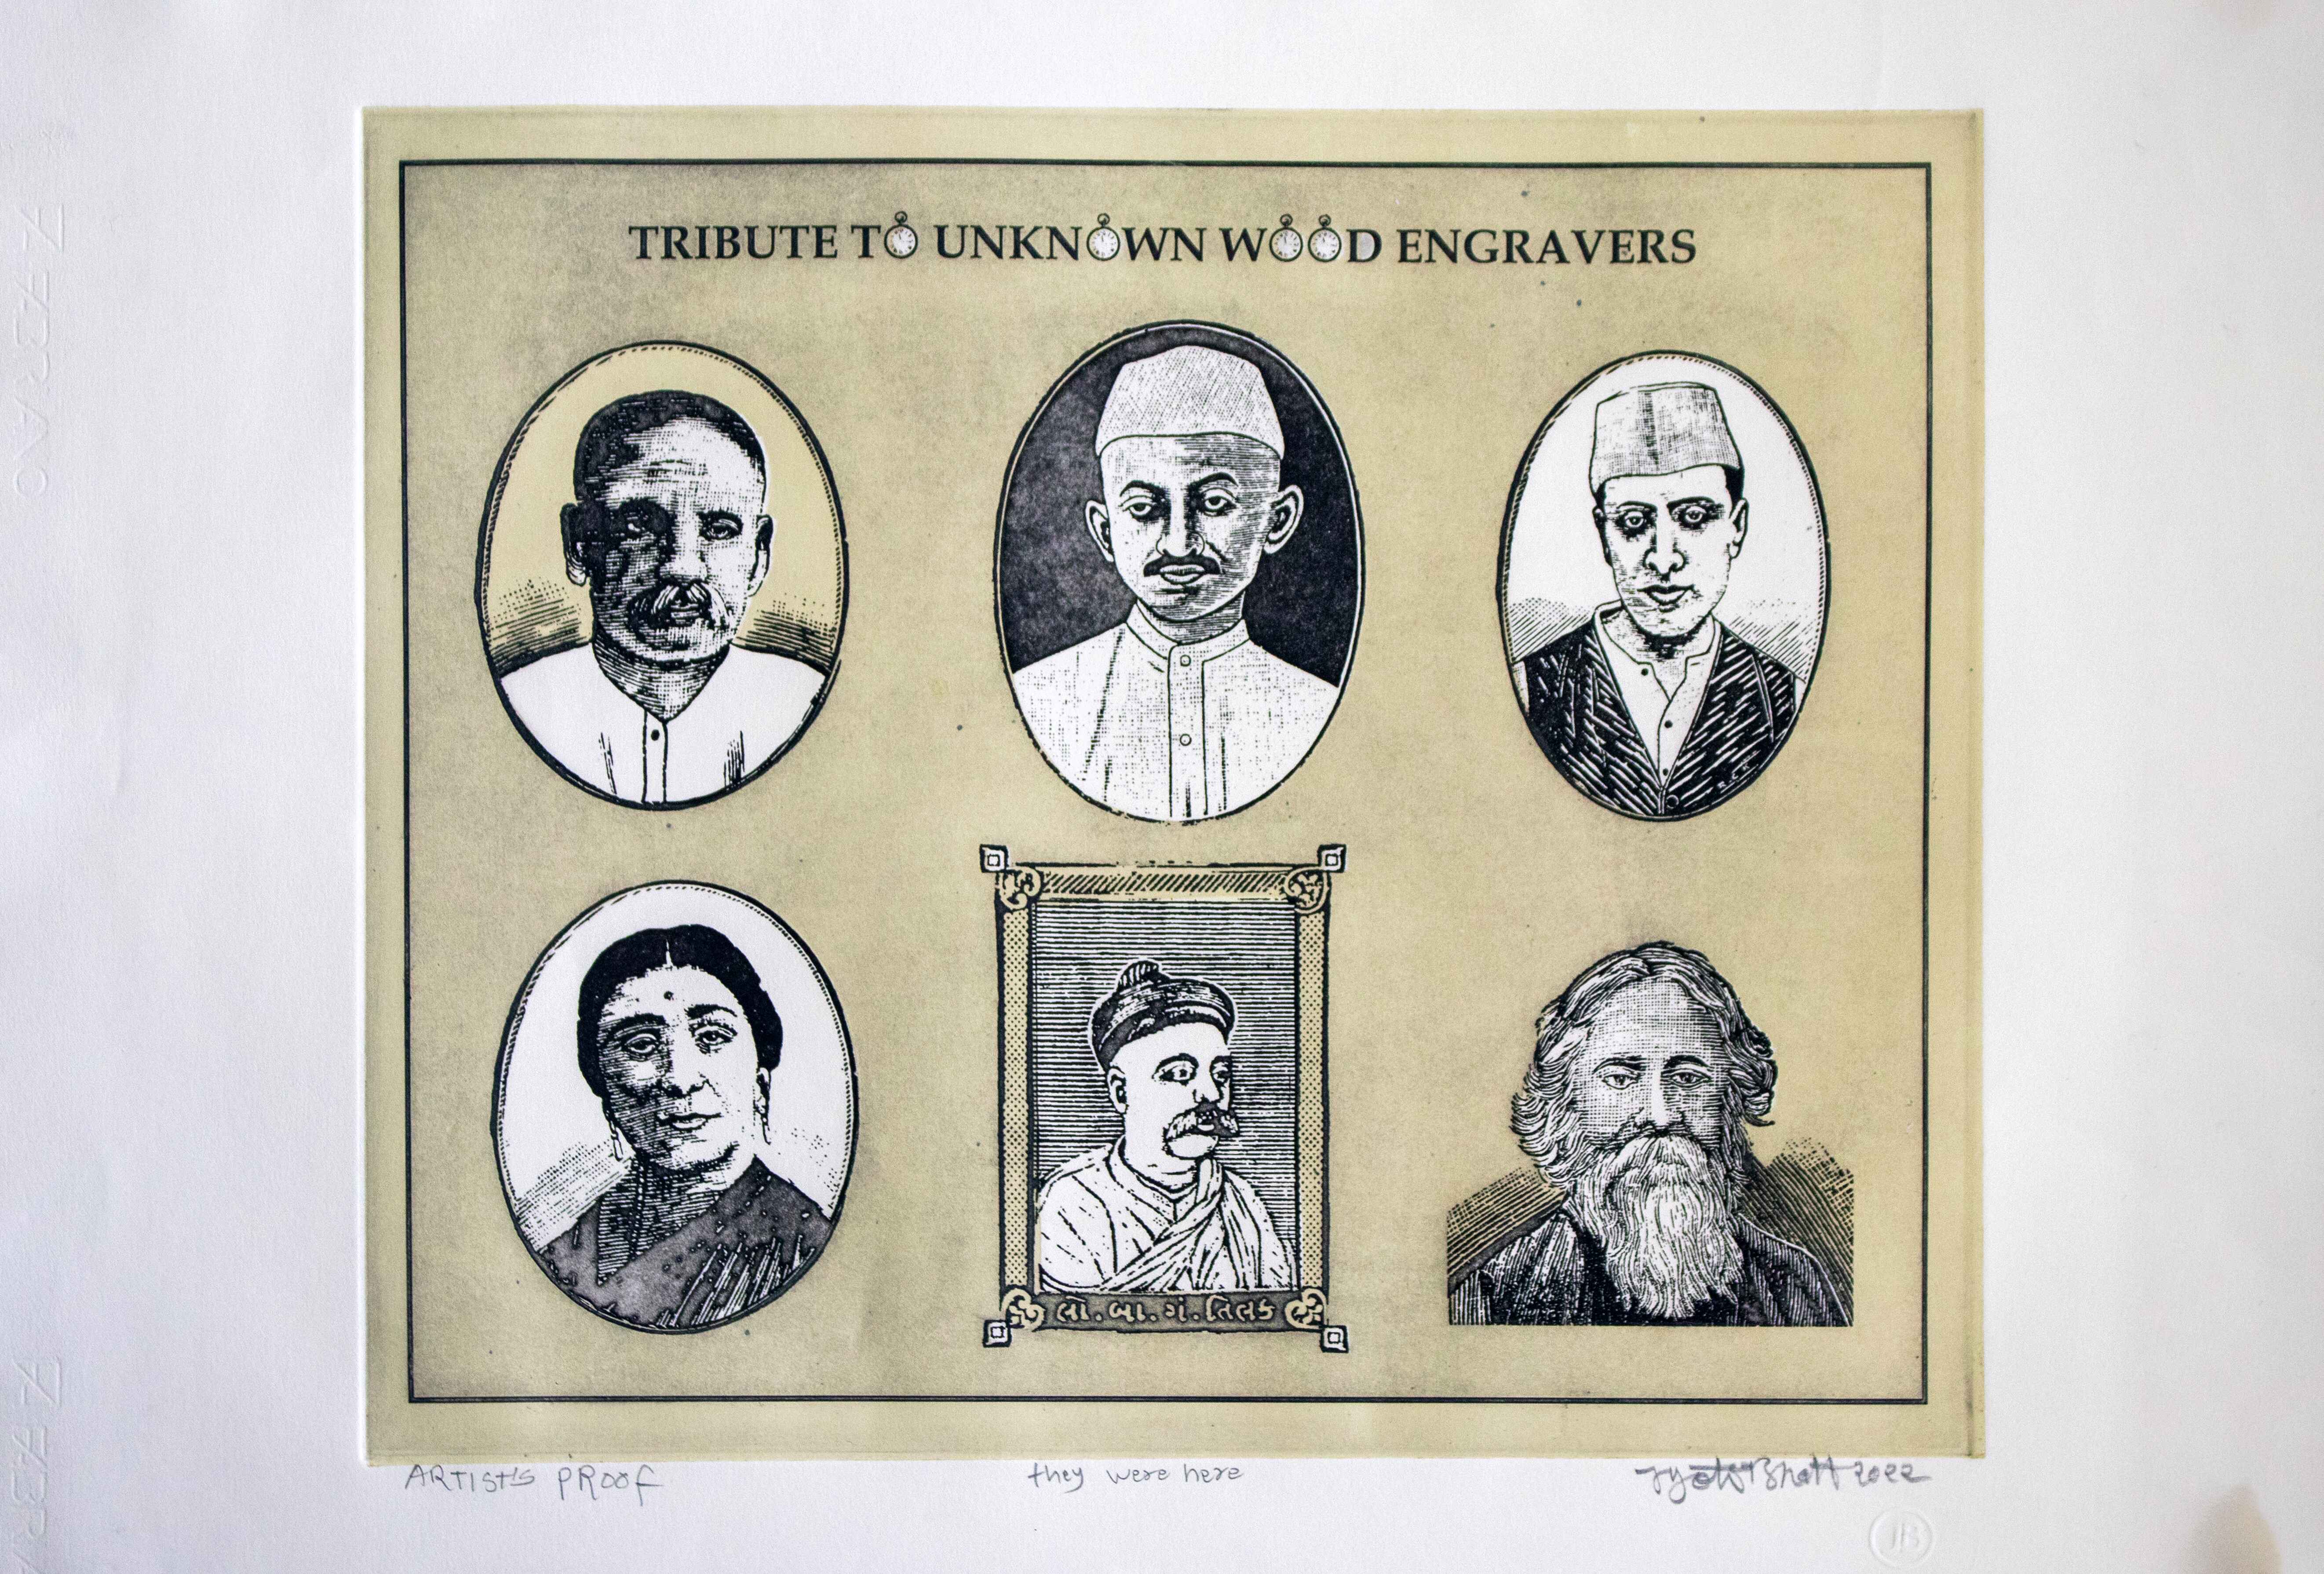 TRIBUTE TO UNKNOWN WOOD ENGRAVERS
લો. બા. ગં. તિલક
ARTIST'S PROOF
they were here
Jyoti Bhatt 2022
JB
FABRIANO